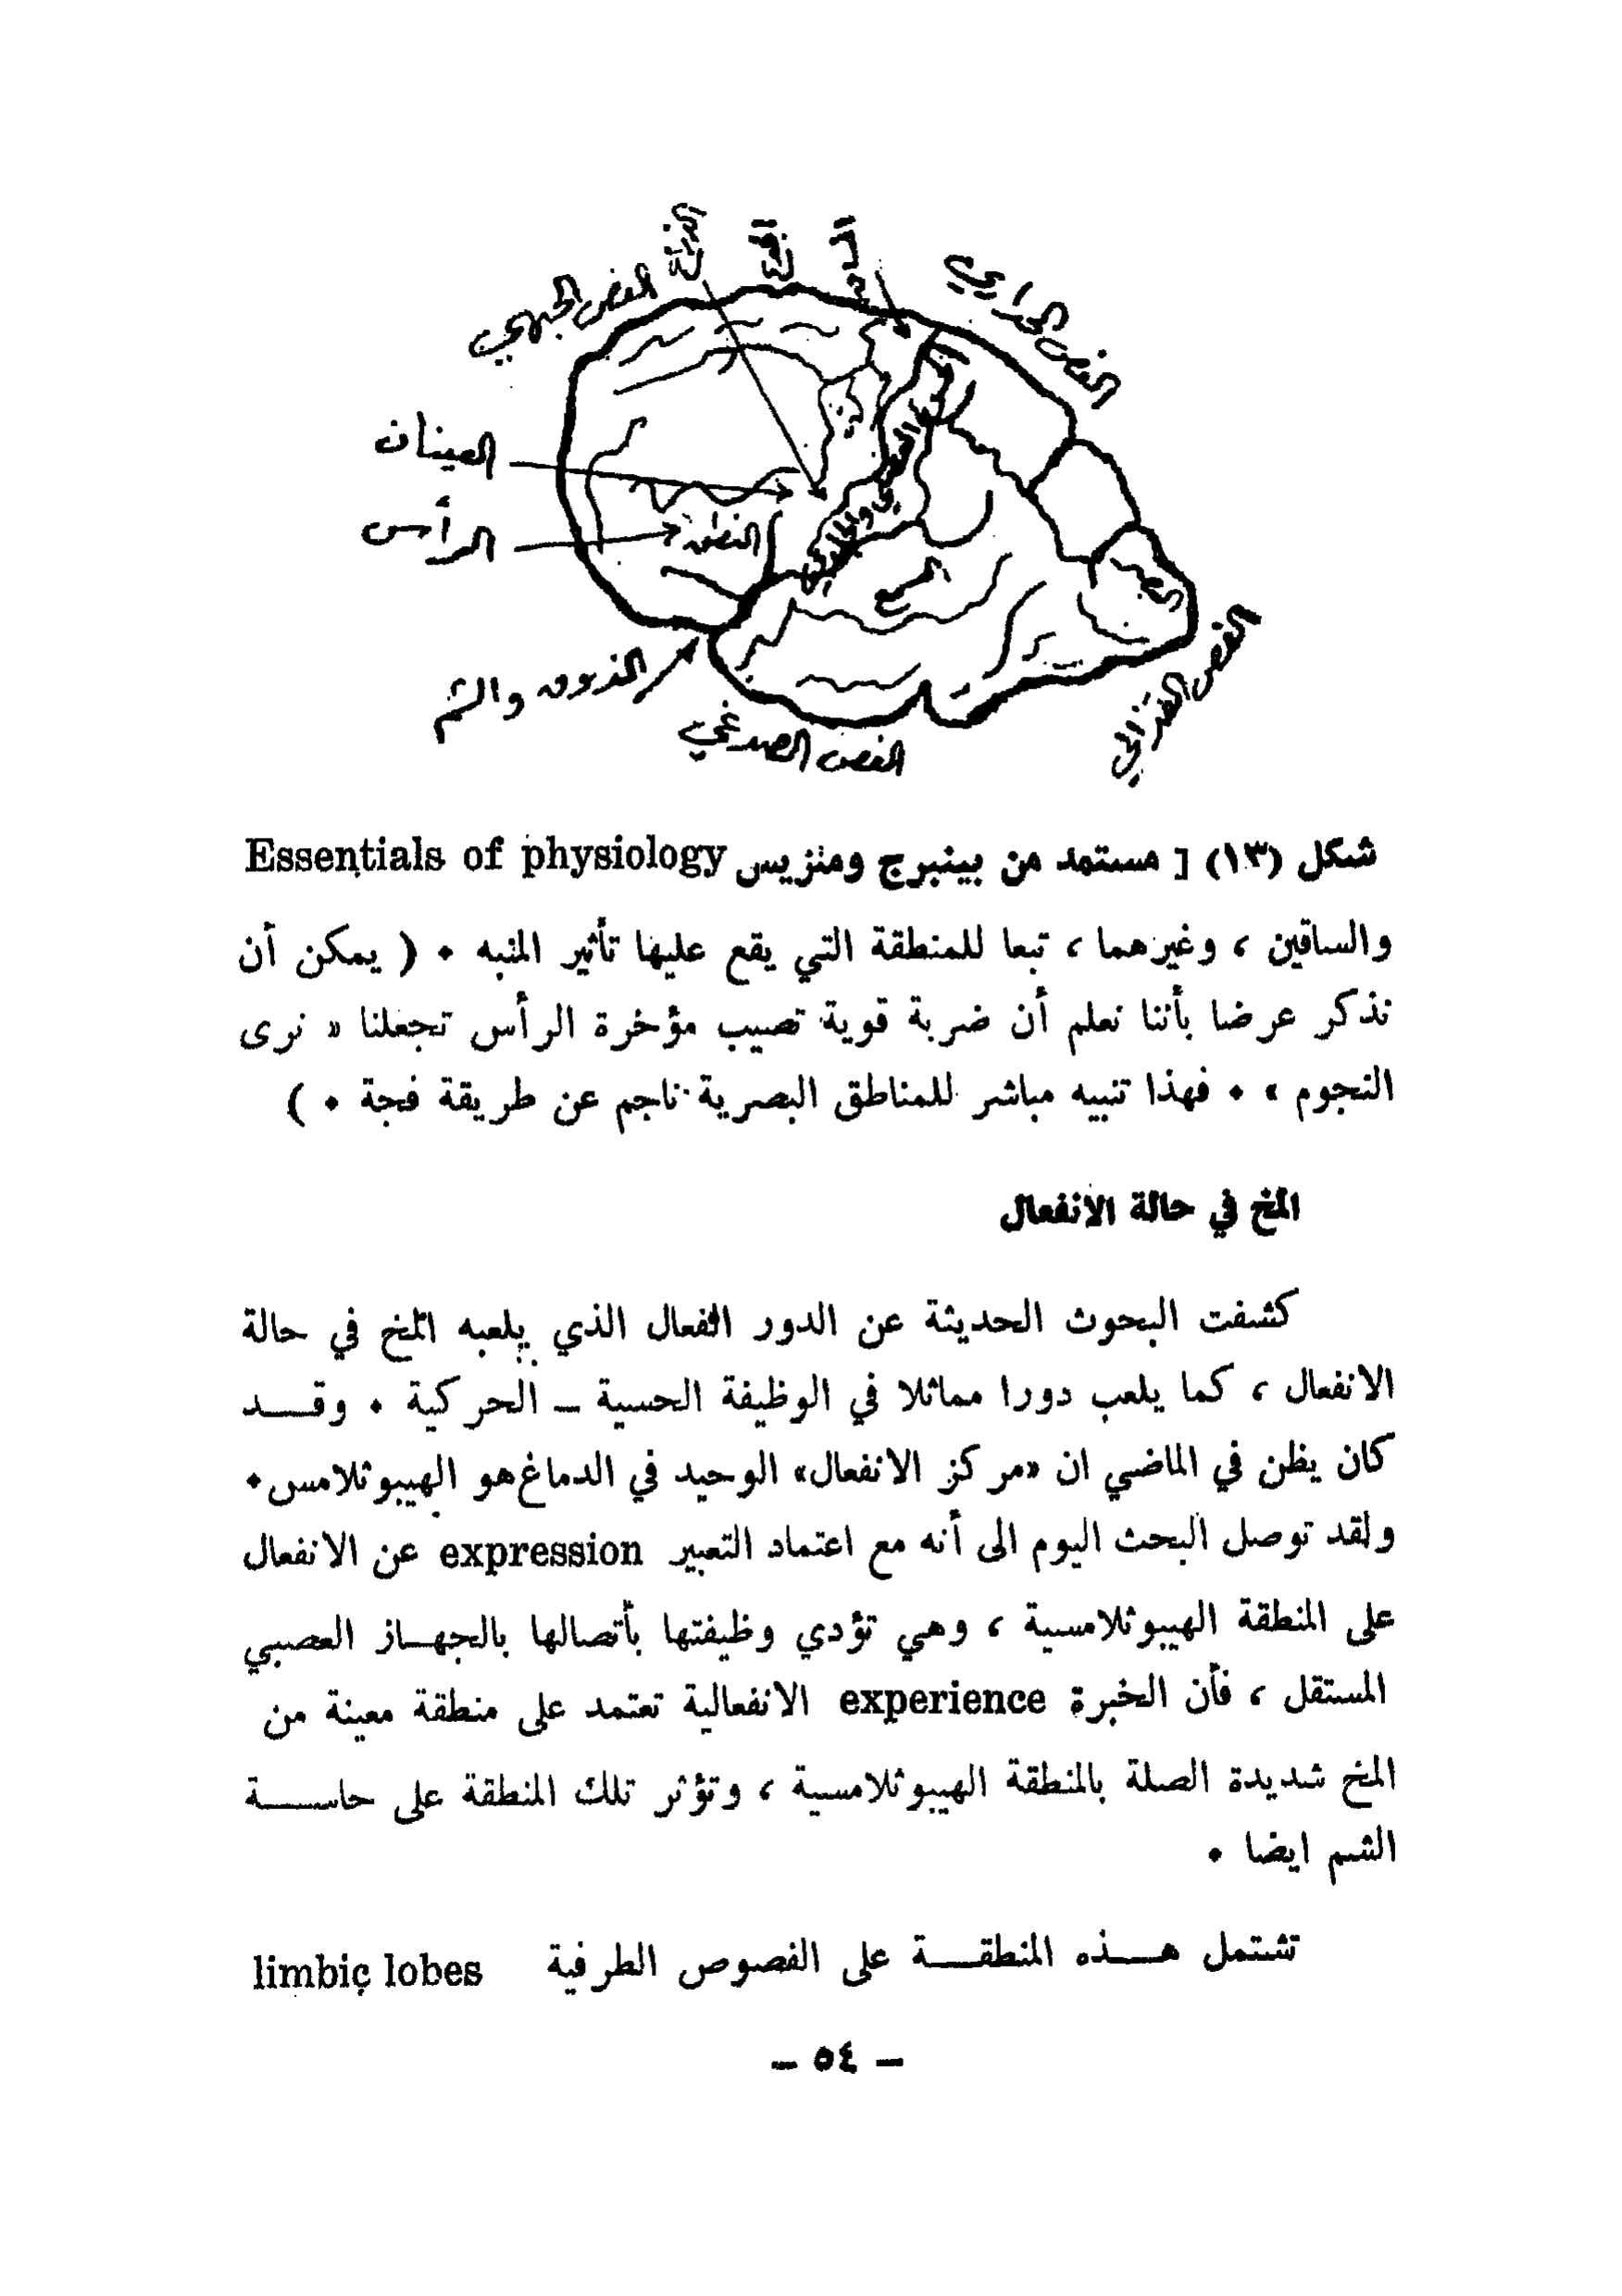 الفص الجبهي
الفص الجداري
العينان
الرأس
النطق
السمع
الذوق والشم
الفص الصدغي
الفص القذالي
شكل (١٣) [ مستمد من بينبرج ومنزيس Essentials of physiology
والساقين ، وغيرهما ، تبعا للمنطقة التي يقع عليها تأثير المنبه . ( يمكن أن
نذكر عرضا بأننا نعلم أن ضربة قوية تصيب مؤخرة الرأس تجعلنا « نرى
النجوم » . فهذا تنبيه مباشر للمناطق البصرية ناجم عن طريقة فجة . )
المخ في حالة الانفعال
كشفت البحوث الحديثة عن الدور الفعال الذي يلعبه المخ في حالة
الانفعال ، كما يلعب دورا مماثلا في الوظيفة الحسية ـ الحركية . وقـــد
كان يظن في الماضي ان «مركز الانفعال» الوحيد في الدماغ هو الهيبوثلامس.
ولقد توصل البحث اليوم الى أنه مع اعتماد التعبير expression عن الانفعال
على المنطقة الهيبوثلامسية ، وهي تؤدي وظيفتها بأتصالها بالجهــاز العصبي
المستقل ، فأن الخبرة experience الانفعالية تعتمد على منطقة معينة من
المخ شديدة الصلة بالمنطقة الهيبوثلامسية ، وتؤثر تلك المنطقة على حاســـة
الشم ايضا .
تشتمل هـــذه المنطقـــة على الفصوص الطرفية limbic lobes
ـ ٥٤ ـ